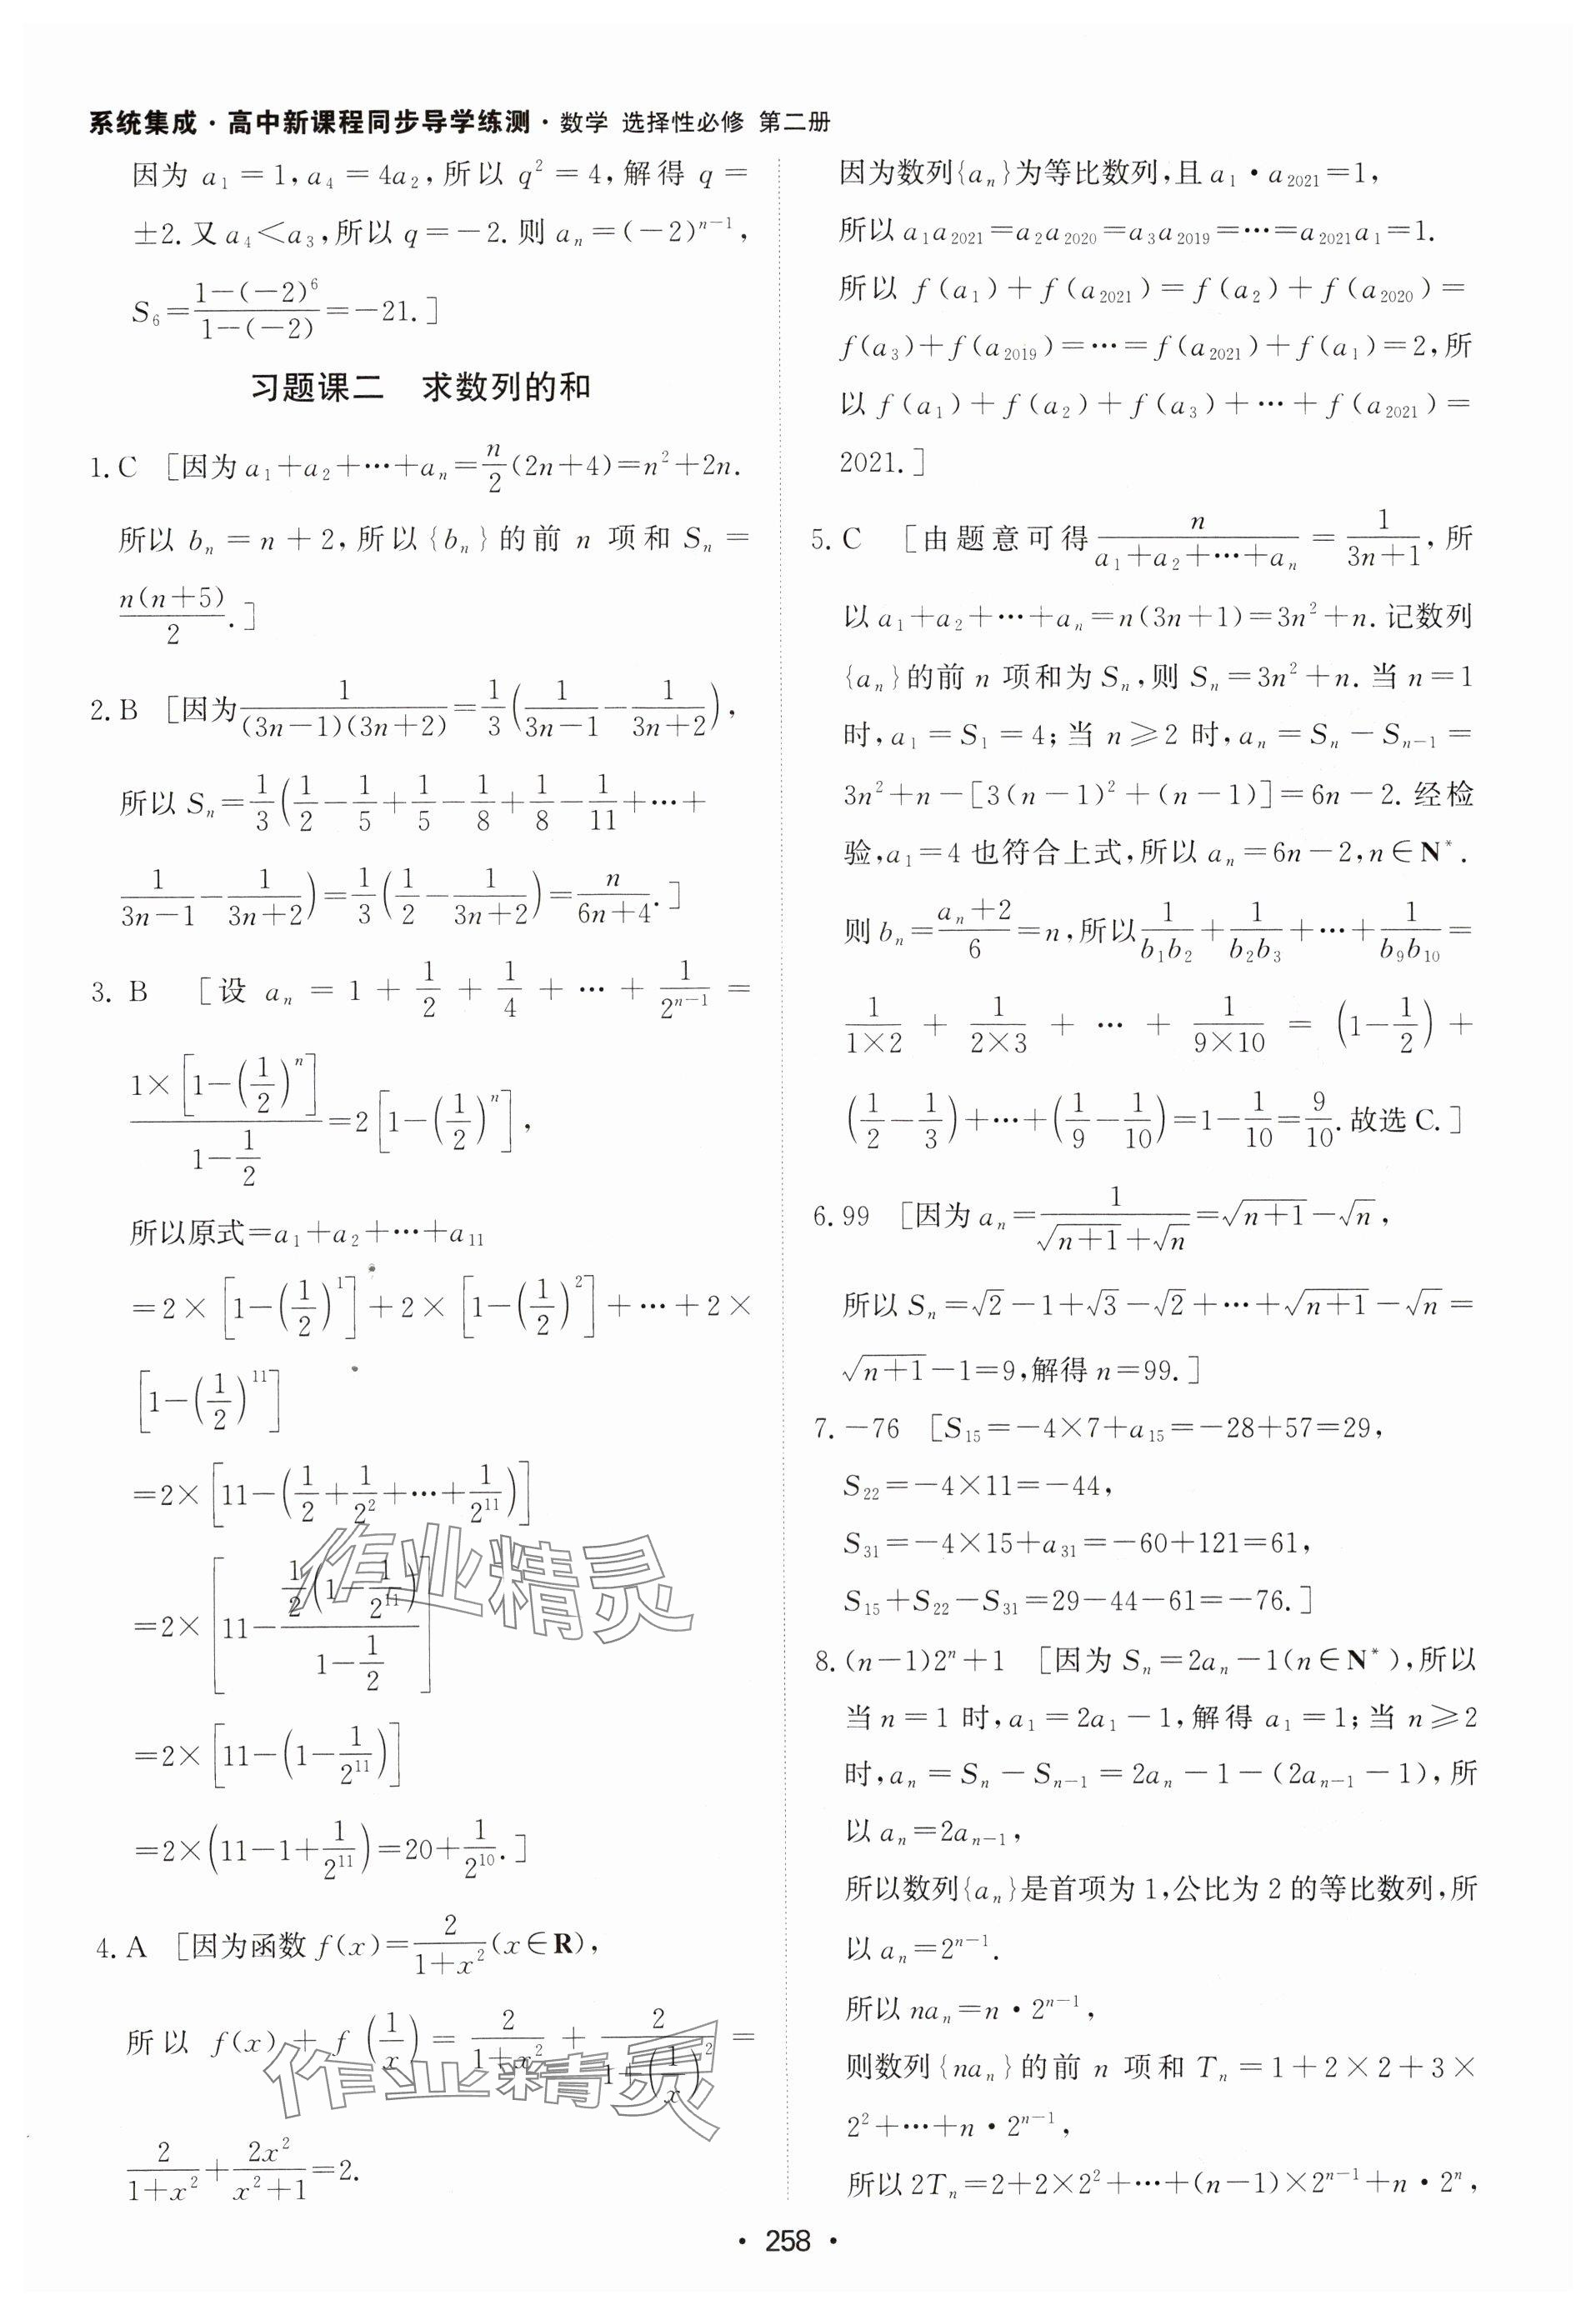 系统集成·高中新课程同步导学练测·数学 选择性必修 第二册
因为 a₁ = 1, a₄ = 4a₂, 所以 q² = 4, 解得 q =
±2. 又 a₄<a₃, 所以 q=−2. 则 aₙ=(−2)ⁿ⁻¹,
S₆=\frac{1−(−2)⁶}{1−(−2)}=−21.]
习题课二 求数列的和
1. C [因为 a₁+a₂+⋯+aₙ=\frac{n}{2}(2n+4)=n²+2n.
所以 bₙ = n + 2, 所以 {bₙ} 的前 n 项和 Sₙ =
\frac{n(n+5)}{2}.]
2. B [因为\frac{1}{(3n−1)(3n+2)}=\frac{1}{3}(\frac{1}{3n−1}−\frac{1}{3n+2}),
所以 Sₙ=\frac{1}{3}(\frac{1}{2}−\frac{1}{5}+\frac{1}{5}−\frac{1}{8}+\frac{1}{8}−\frac{1}{11}+⋯+
\frac{1}{3n−1}−\frac{1}{3n+2})=\frac{1}{3}(\frac{1}{2}−\frac{1}{3n+2})=\frac{n}{6n+4}.]
3. B [设 aₙ = 1 + \frac{1}{2} + \frac{1}{4} + ⋯ + \frac{1}{2ⁿ⁻¹} =
\frac{1×[1−(\frac{1}{2})ⁿ]}{1−\frac{1}{2}}=2[1−(\frac{1}{2})ⁿ],
所以原式=a₁+a₂+⋯+a₁₁
=2×[1−(\frac{1}{2})¹]+2×[1−(\frac{1}{2})²]+⋯+2×
[1−(\frac{1}{2})¹¹]
=2×[11−(\frac{1}{2}+\frac{1}{2²}+⋯+\frac{1}{2¹¹})]
=2×[11−\frac{\frac{1}{2}(1−\frac{1}{2¹¹})}{1−\frac{1}{2}}]
=2×[11−(1−\frac{1}{2¹¹})]
=2×(11−1+\frac{1}{2¹¹})=20+\frac{1}{2¹⁰}.]
4. A [因为函数 f(x)=\frac{2}{1+x²}(x∈R),
所以 f(x) + f(\frac{1}{x}) = \frac{2}{1+x²} + \frac{2}{1+(\frac{1}{x})²} =
\frac{2}{1+x²}+\frac{2x²}{x²+1}=2.
因为数列{aₙ}为等比数列, 且 a₁·a₂₀₂₁=1,
所以 a₁a₂₀₂₁=a₂a₂₀₂₀=a₃a₂₀₁₉=⋯=a₂₀₂₁a₁=1.
所以 f(a₁)+f(a₂₀₂₁)=f(a₂)+f(a₂₀₂₀)=
f(a₃)+f(a₂₀₁₉)=⋯=f(a₂₀₂₁)+f(a₁)=2, 所
以 f(a₁)+f(a₂)+f(a₃)+⋯+f(a₂₀₂₁)=
2021.]
5. C [由题意可得\frac{n}{a₁+a₂+⋯+aₙ} = \frac{1}{3n+1}, 所
以 a₁+a₂+⋯+aₙ=n(3n+1)=3n²+n. 记数列
{aₙ}的前 n 项和为 Sₙ, 则 Sₙ=3n²+n. 当 n=1
时, a₁=S₁=4; 当 n≥2 时, aₙ=Sₙ−Sₙ₋₁=
3n²+n−[3(n−1)²+(n−1)]=6n−2. 经检
验, a₁=4 也符合上式, 所以 aₙ=6n−2, n∈N*.
则 bₙ=\frac{aₙ+2}{6}=n, 所以\frac{1}{b₁b₂}+\frac{1}{b₂b₃}+⋯+\frac{1}{b₉b₁₀}=
\frac{1}{1×2} + \frac{1}{2×3} + ⋯ + \frac{1}{9×10} = (1−\frac{1}{2}) +
(\frac{1}{2}−\frac{1}{3})+⋯+(\frac{1}{9}−\frac{1}{10})=1−\frac{1}{10}=\frac{9}{10}. 故选 C.]
6. 99 [因为 aₙ=\frac{1}{√(n+1)+√n}=√(n+1)−√n,
所以 Sₙ=√2−1+√3−√2+⋯+√(n+1)−√n=
√(n+1)−1=9, 解得 n=99.]
7. −76 [S₁₅=−4×7+a₁₅=−28+57=29,
S₂₂=−4×11=−44,
S₃₁=−4×15+a₃₁=−60+121=61,
S₁₅+S₂₂−S₃₁=29−44−61=−76.]
8. (n−1)2ⁿ+1 [因为 Sₙ=2aₙ−1(n∈N*), 所以
当 n=1 时, a₁=2a₁−1, 解得 a₁=1; 当 n≥2
时, aₙ=Sₙ−Sₙ₋₁=2aₙ−1−(2aₙ₋₁−1), 所
以 aₙ=2aₙ₋₁,
所以数列{aₙ}是首项为 1, 公比为 2 的等比数列, 所
以 aₙ=2ⁿ⁻¹.
所以 naₙ=n·2ⁿ⁻¹,
则数列{naₙ}的前 n 项和 Tₙ=1+2×2+3×
2²+⋯+n·2ⁿ⁻¹,
所以 2Tₙ=2+2×2²+⋯+(n−1)×2ⁿ⁻¹+n·2ⁿ,
作业精灵
作业精灵
· 258 ·